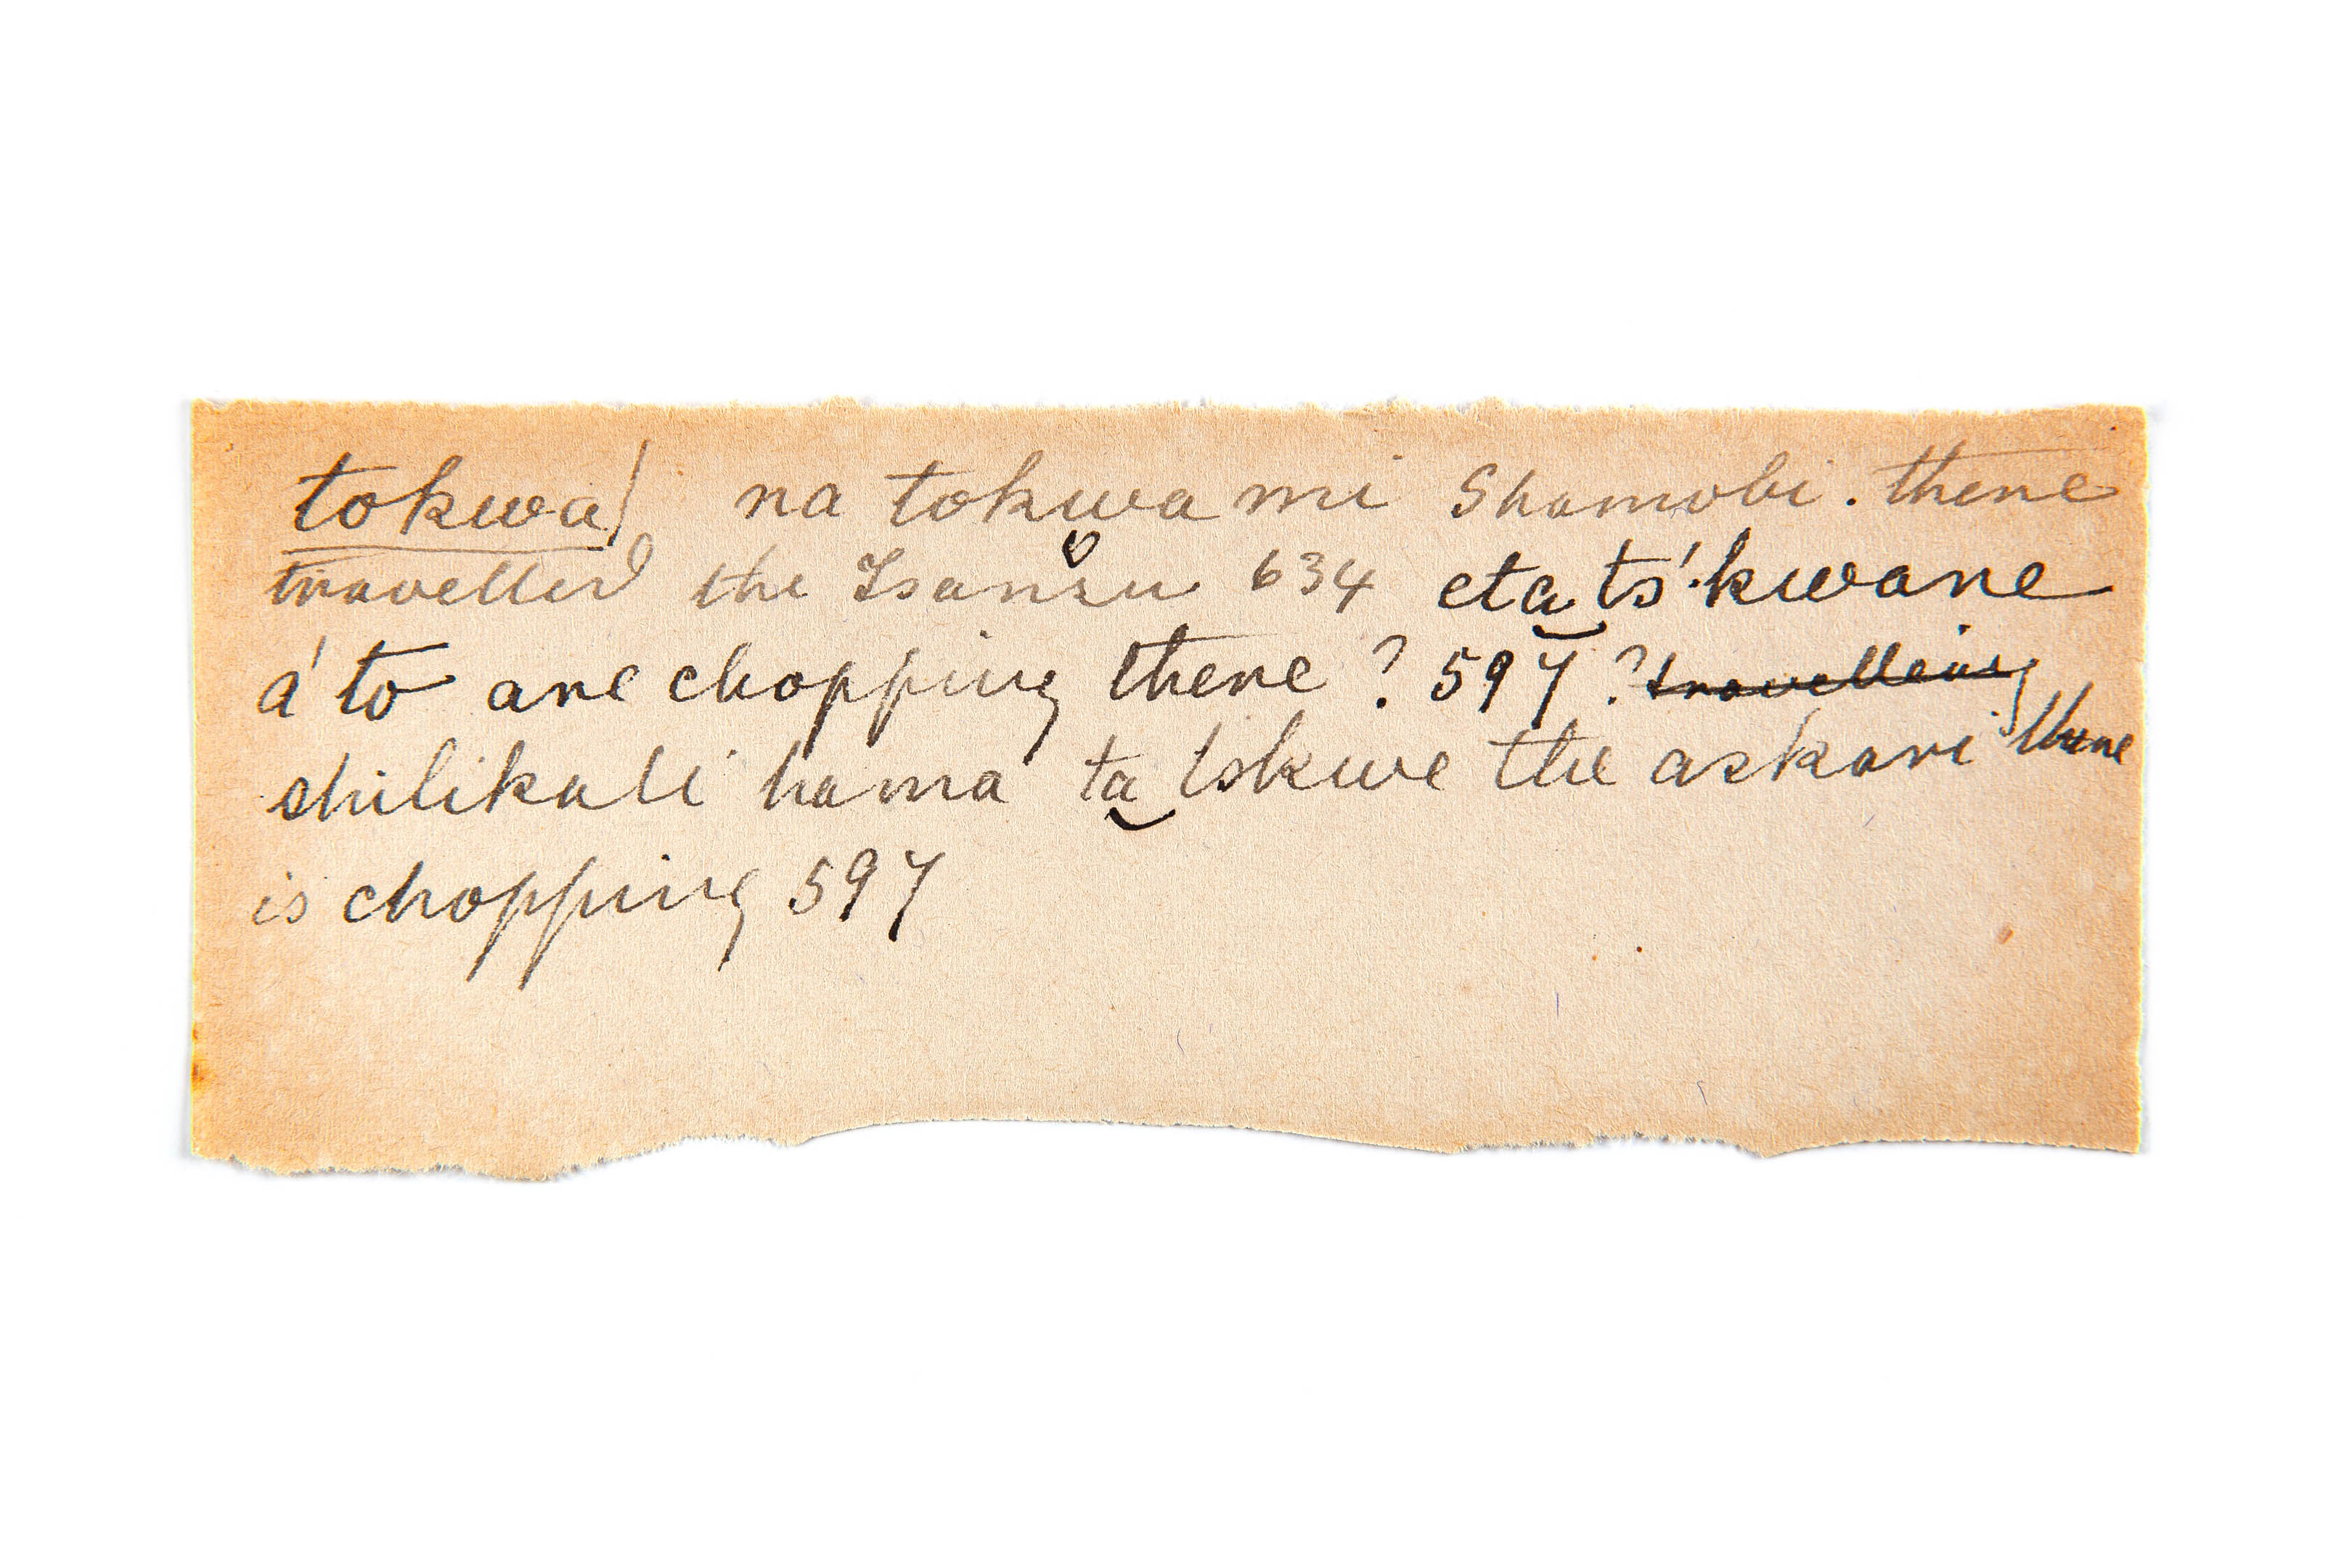 tokwa/ na tokwa mi Shamobi. there
travelled the Isanzu 634 eta ts'kwane
á to are chopping there? 597 ? travelling
shilikali hama ta tskwe the askari there
is chopping 597